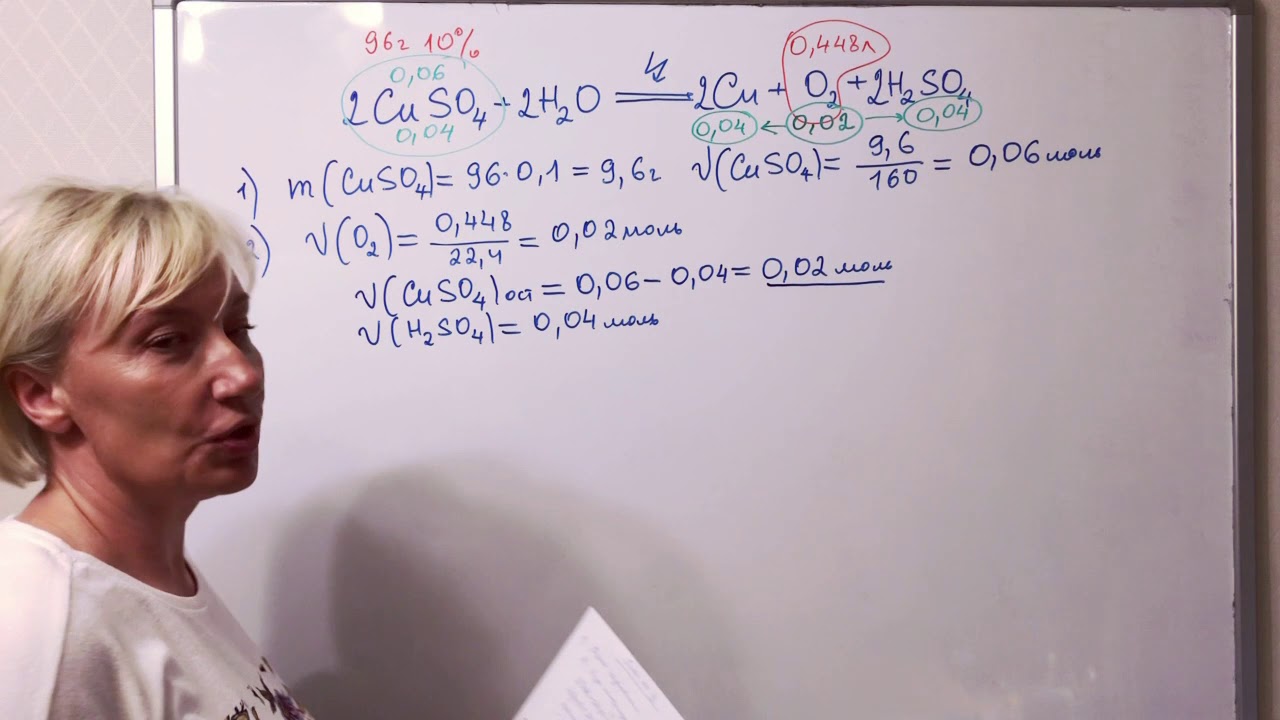 96г 10% 0,448л
0,06
2CuSO₄ + 2H₂O = 2Cu + O₂ + 2H₂SO₄
0,04 0,04 ← 0,02 → 0,04
1) m(CuSO₄) = 96·0,1 = 9,6г ν(CuSO₄) = 9,6/160 = 0,06 моль
2) ν(O₂) = 0,448/22,4 = 0,02 моль
ν(CuSO₄)ост = 0,06 – 0,04 = 0,02 моль
ν(H₂SO₄) = 0,04 моль